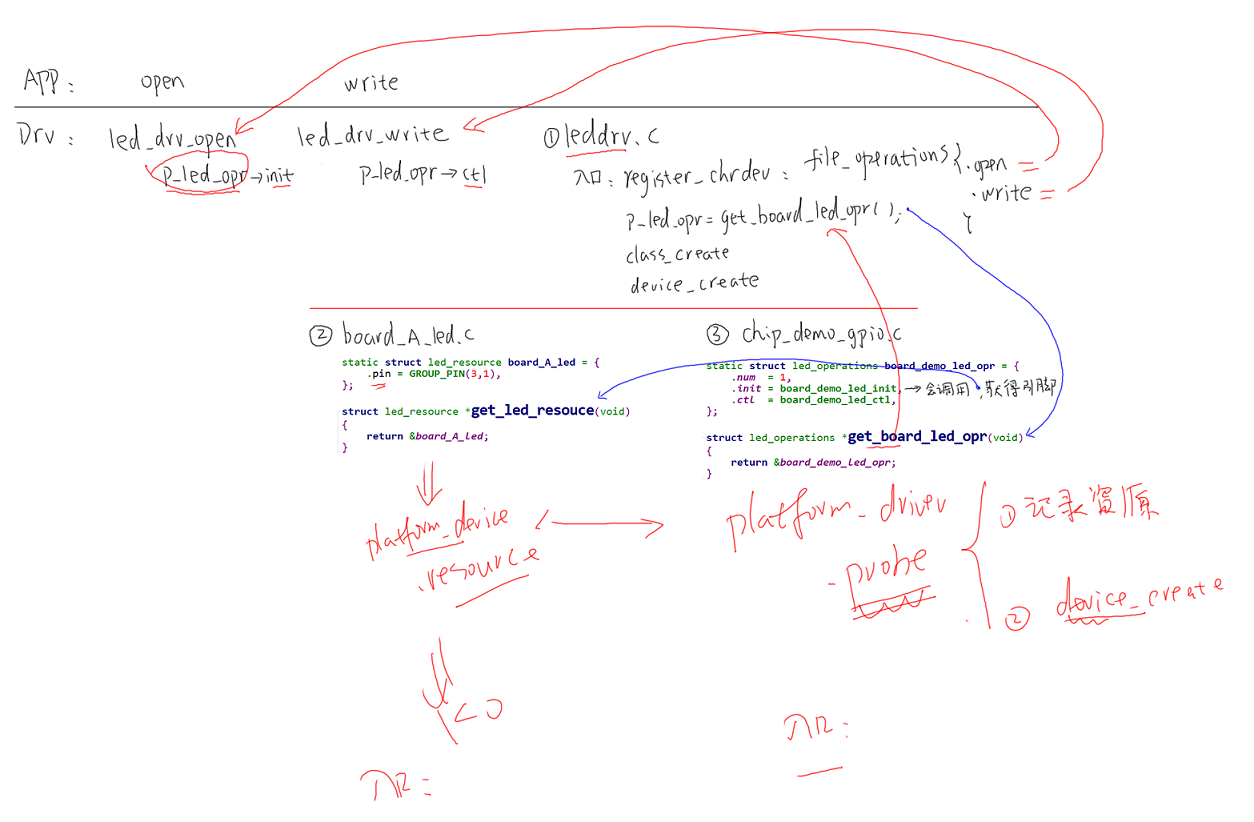 APP: open write
Drv: led_drv_open led_drv_write ①leddrv.c
p_led_opr→init p_led_opr→ctl 入口: register_chrdev: file_operations{.open =
.write =
}
p_led_opr = get_board_led_opr();
class_create
device_create
② board_A_led.c
static struct led_resource board_A_led = {
.pin = GROUP_PIN(3,1),
};
struct led_resource *get_led_resouce(void)
{
return &board_A_led;
}
③ chip_demo_gpio.c
static struct led_operations board_demo_led_opr = {
.num = 1,
.init = board_demo_led_init, → 会调用,获得引脚
.ctl = board_demo_led_ctl,
};
struct led_operations *get_board_led_opr(void)
{
return &board_demo_led_opr;
}
platform_device
.resource
platform_driver
.probe
①记录资源
② device_create
入口:
入口: